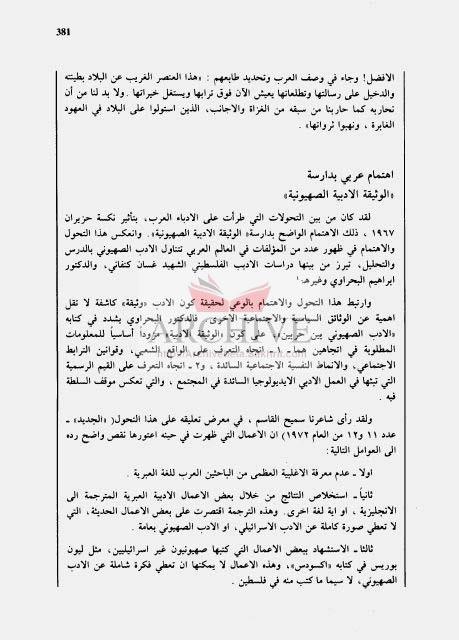 381
الافضل! وجاء في وصف العرب وتحديد طابعهم : «هذا العنصر الغريب عن البلاد بطينته
والدخيل على رسالتها وتطلعاتها يعيش الآن فوق ترابها ويستغل خيراتها . ولا بد لنا من أن
نحاربه كما حاربنا من سبقه من الغزاة والاجانب، الذين استولوا على البلاد في العهود
الغابرة ، ونهبوا ثرواتها» .
اهتمام عربي بدارسة
«الوثيقة الادبية الصهيونية»
لقد كان من بين التحولات التي طرأت على الادباء العرب، بتأثير نكسة حزيران
١٩٦٧ ، ذلك الاهتمام الواضح بدارسة «الوثيقة الادبية الصهيونية». وانعكس هذا التحول
والاهتمام في ظهور عدد من المؤلفات في العالم العربي تتناول الادب الصهيوني بالدرس
والتحليل، تبرز من بينها دراسات الاديب الفلسطيني الشهيد غسان كنفاني، والدكتور
ابراهيم البحراوي وغيرهما
وارتبط هذا التحول والاهتمام بالوعي لحقيقة كون الادب «وثيقة» كاشفة لا تقل
اهمية عن الوثائق السياسية والاجتماعية الاخرى. فالدكتور البحراوي يشدد في كتابه
«الادب الصهيوني بين حربين» على كون «الوثيقة الادبية» مزوداً أساسياً للمعلومات
المطلوبة في اتجاهين هما ـ ١ـ اتجاه التعرف على الواقع الشعبي، وقوانين الترابط
الاجتماعي، والانماط النفسية الاجتماعية السائدة ، و٢ ـ اتجاه التعرف على القيم الرسمية
التي تبثها في العمل الادبي الايديولوجيا السائدة في المجتمع ، والتي تعكس موقف السلطة
فيه .
ولقد رأى شاعرنا سميح القاسم ، في معرض تعليقه على هذا التحول( «الجديد» ـ
عدد ١١ و١٢ من العام ١٩٧٢) ان الاعمال التي ظهرت في حينه اعتورها نقص واضح رده
الى العوامل التالية:
اولا ـ عدم معرفة الاغلبية العظمى من الباحثين العرب للغة العبرية .
ثانياً ـ استخلاص النتائج من خلال بعض الاعمال الادبية العبرية المترجمة الى
الانجليزية ، او اية لغة اخرى. وهذه الترجمة اقتصرت على بعض الاعمال الحديثة، التي
لا تعطي صورة كاملة عن الادب الاسرائيلي، او الادب الصهيوني بعامة .
ثالثا ـ الاستشهاد ببعض الاعمال التي كتبها صهيونيون غير اسرائيليين، مثل ليون
يوريس في كتابه «اكسودس»، وهذه الاعمال لا يمكنها ان تعطي فكرة شاملة عن الادب
الصهيوني، لا سيما ما كتب منه في فلسطين .
ARCHIVE